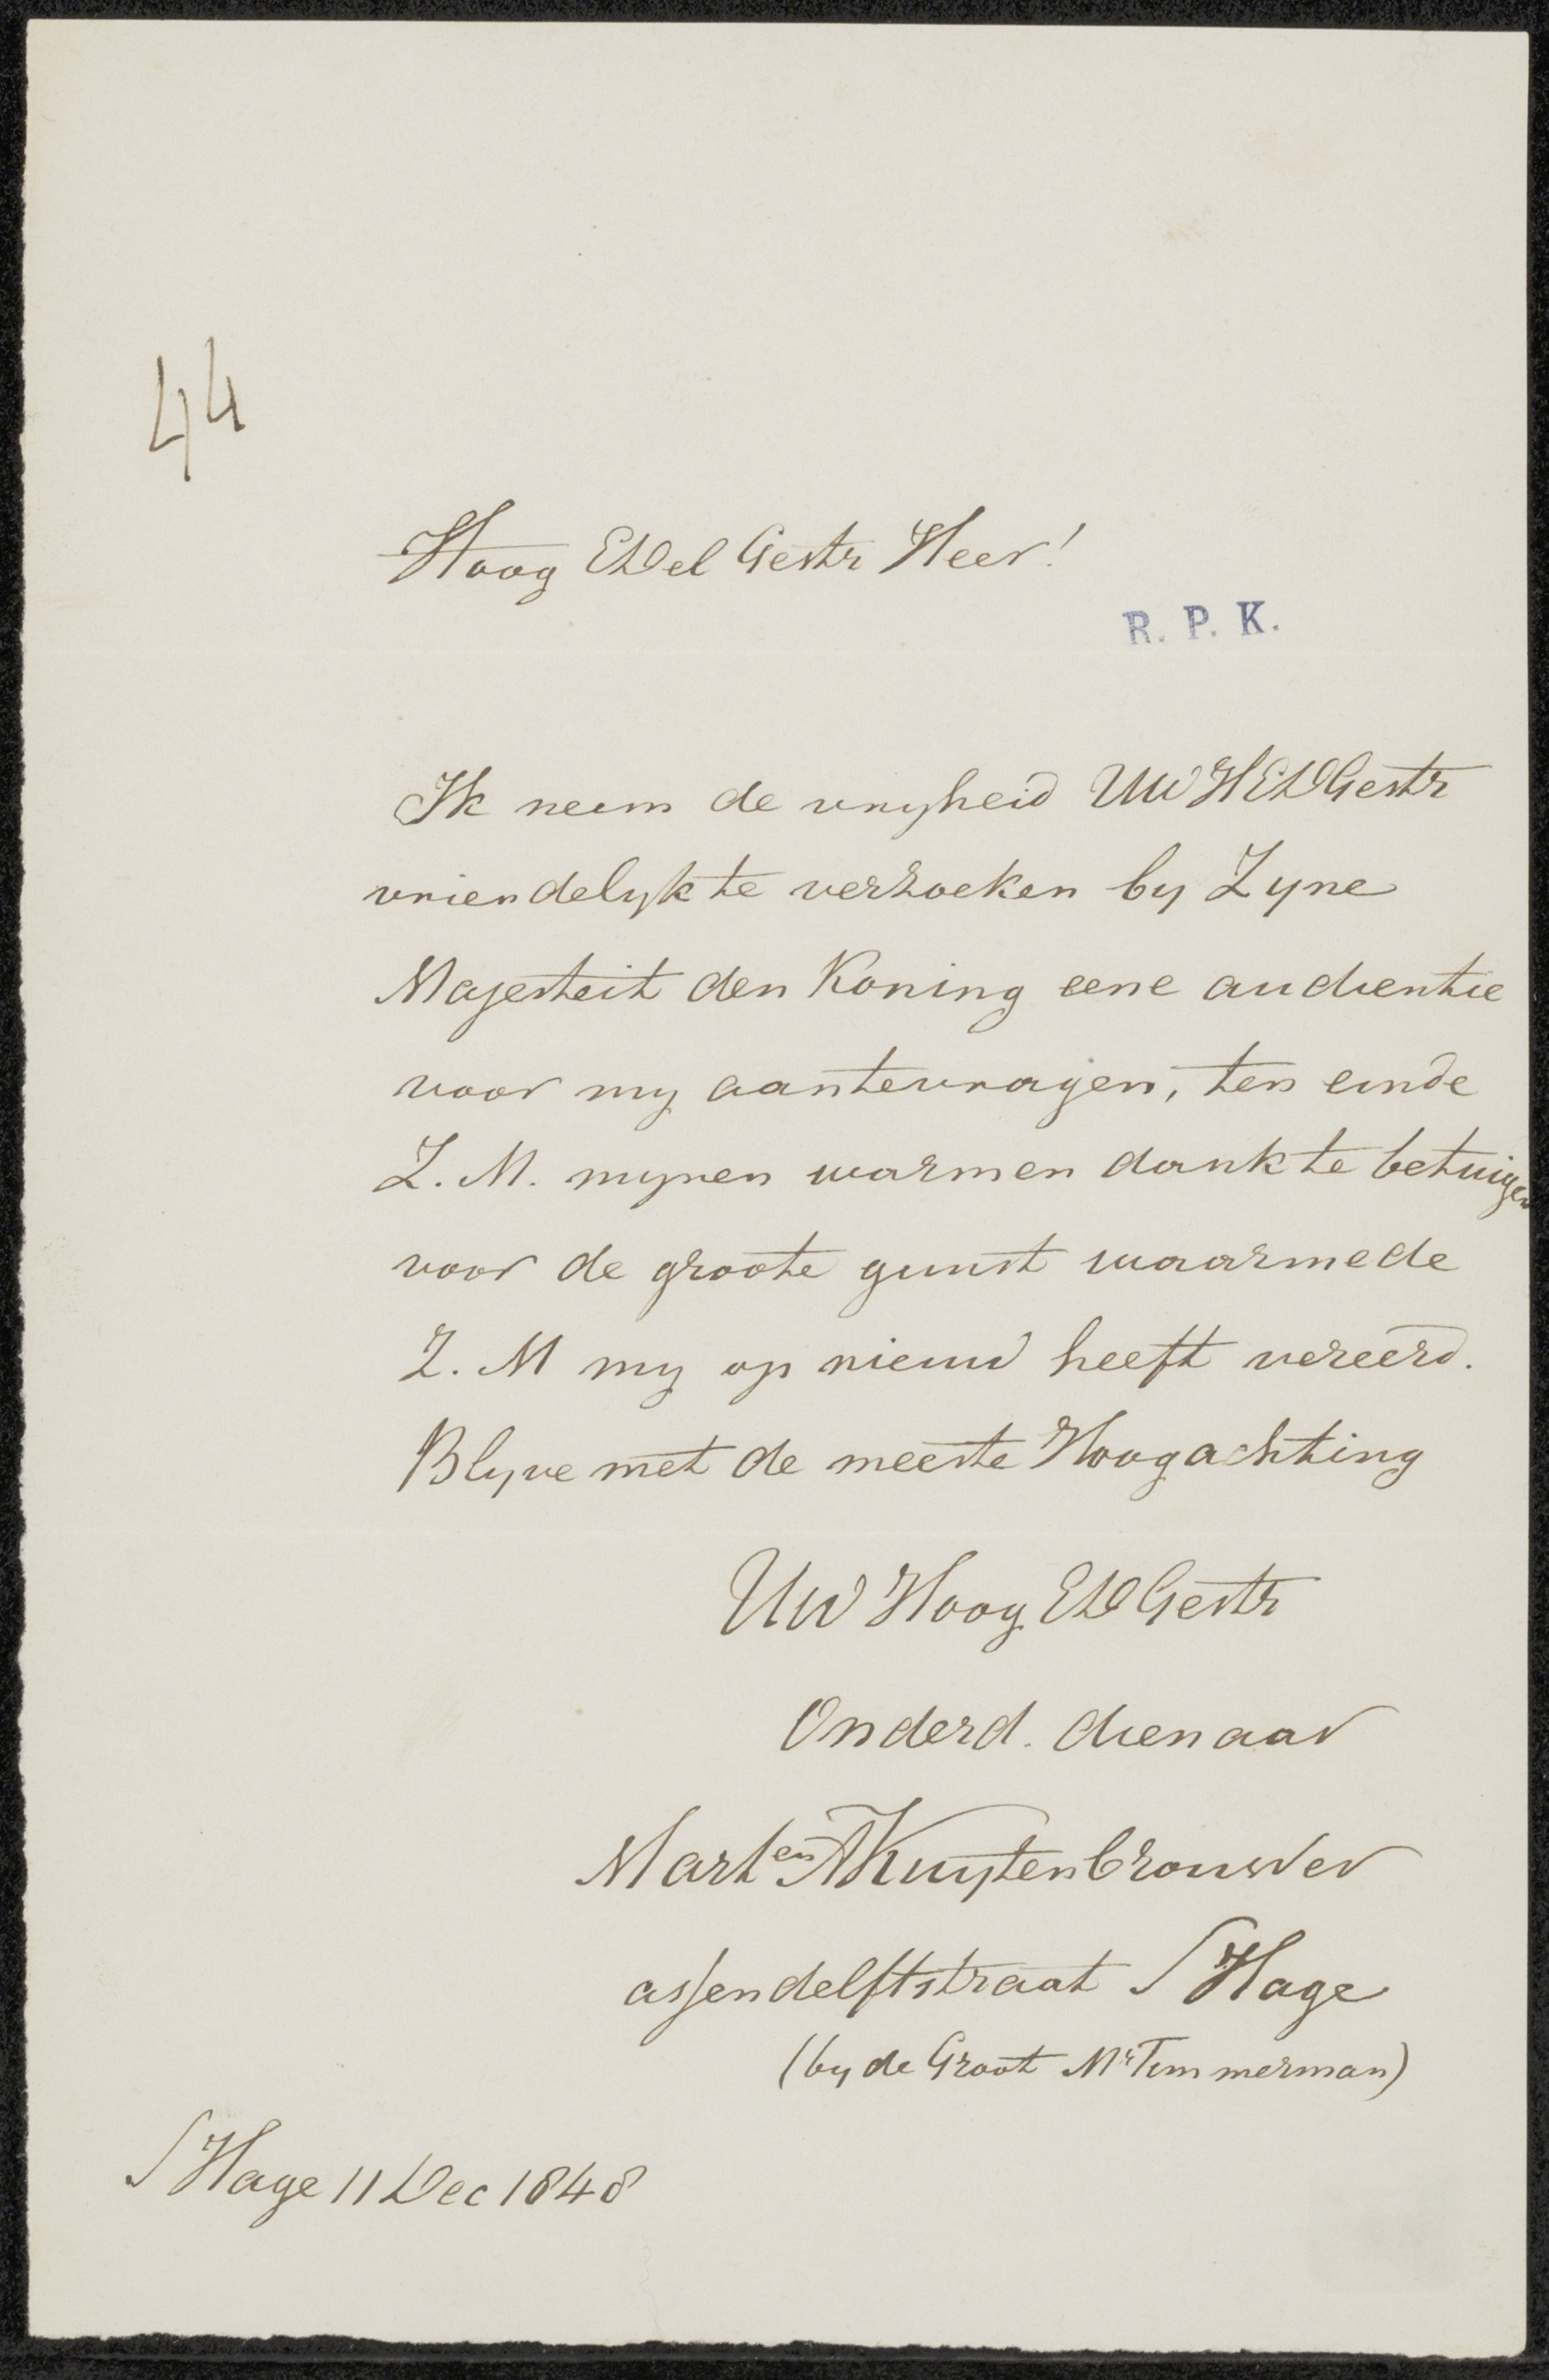 44
Hoog Edel Gestr Heer!
R. P. K.
Ik neem de vryheid UW HEdGestr
vriendelyk te verzoeken by Zyne
Majesteit den Koning eene audientie
voor my aantevragen, ten einde
Z. M. mynen warmen dank te betuigen
voor de groote gunst waarmede
Z. M my op nieuw heeft vereerd.
Blyve met de meeste Hoogachting
UW Hoog EdGestr
Onderd. dienaar
Marten A Kuytenbrouwer
assendelftstraat S Hage
(by de Groot Mr Timmerman)
S Hage 11 Dec 1848